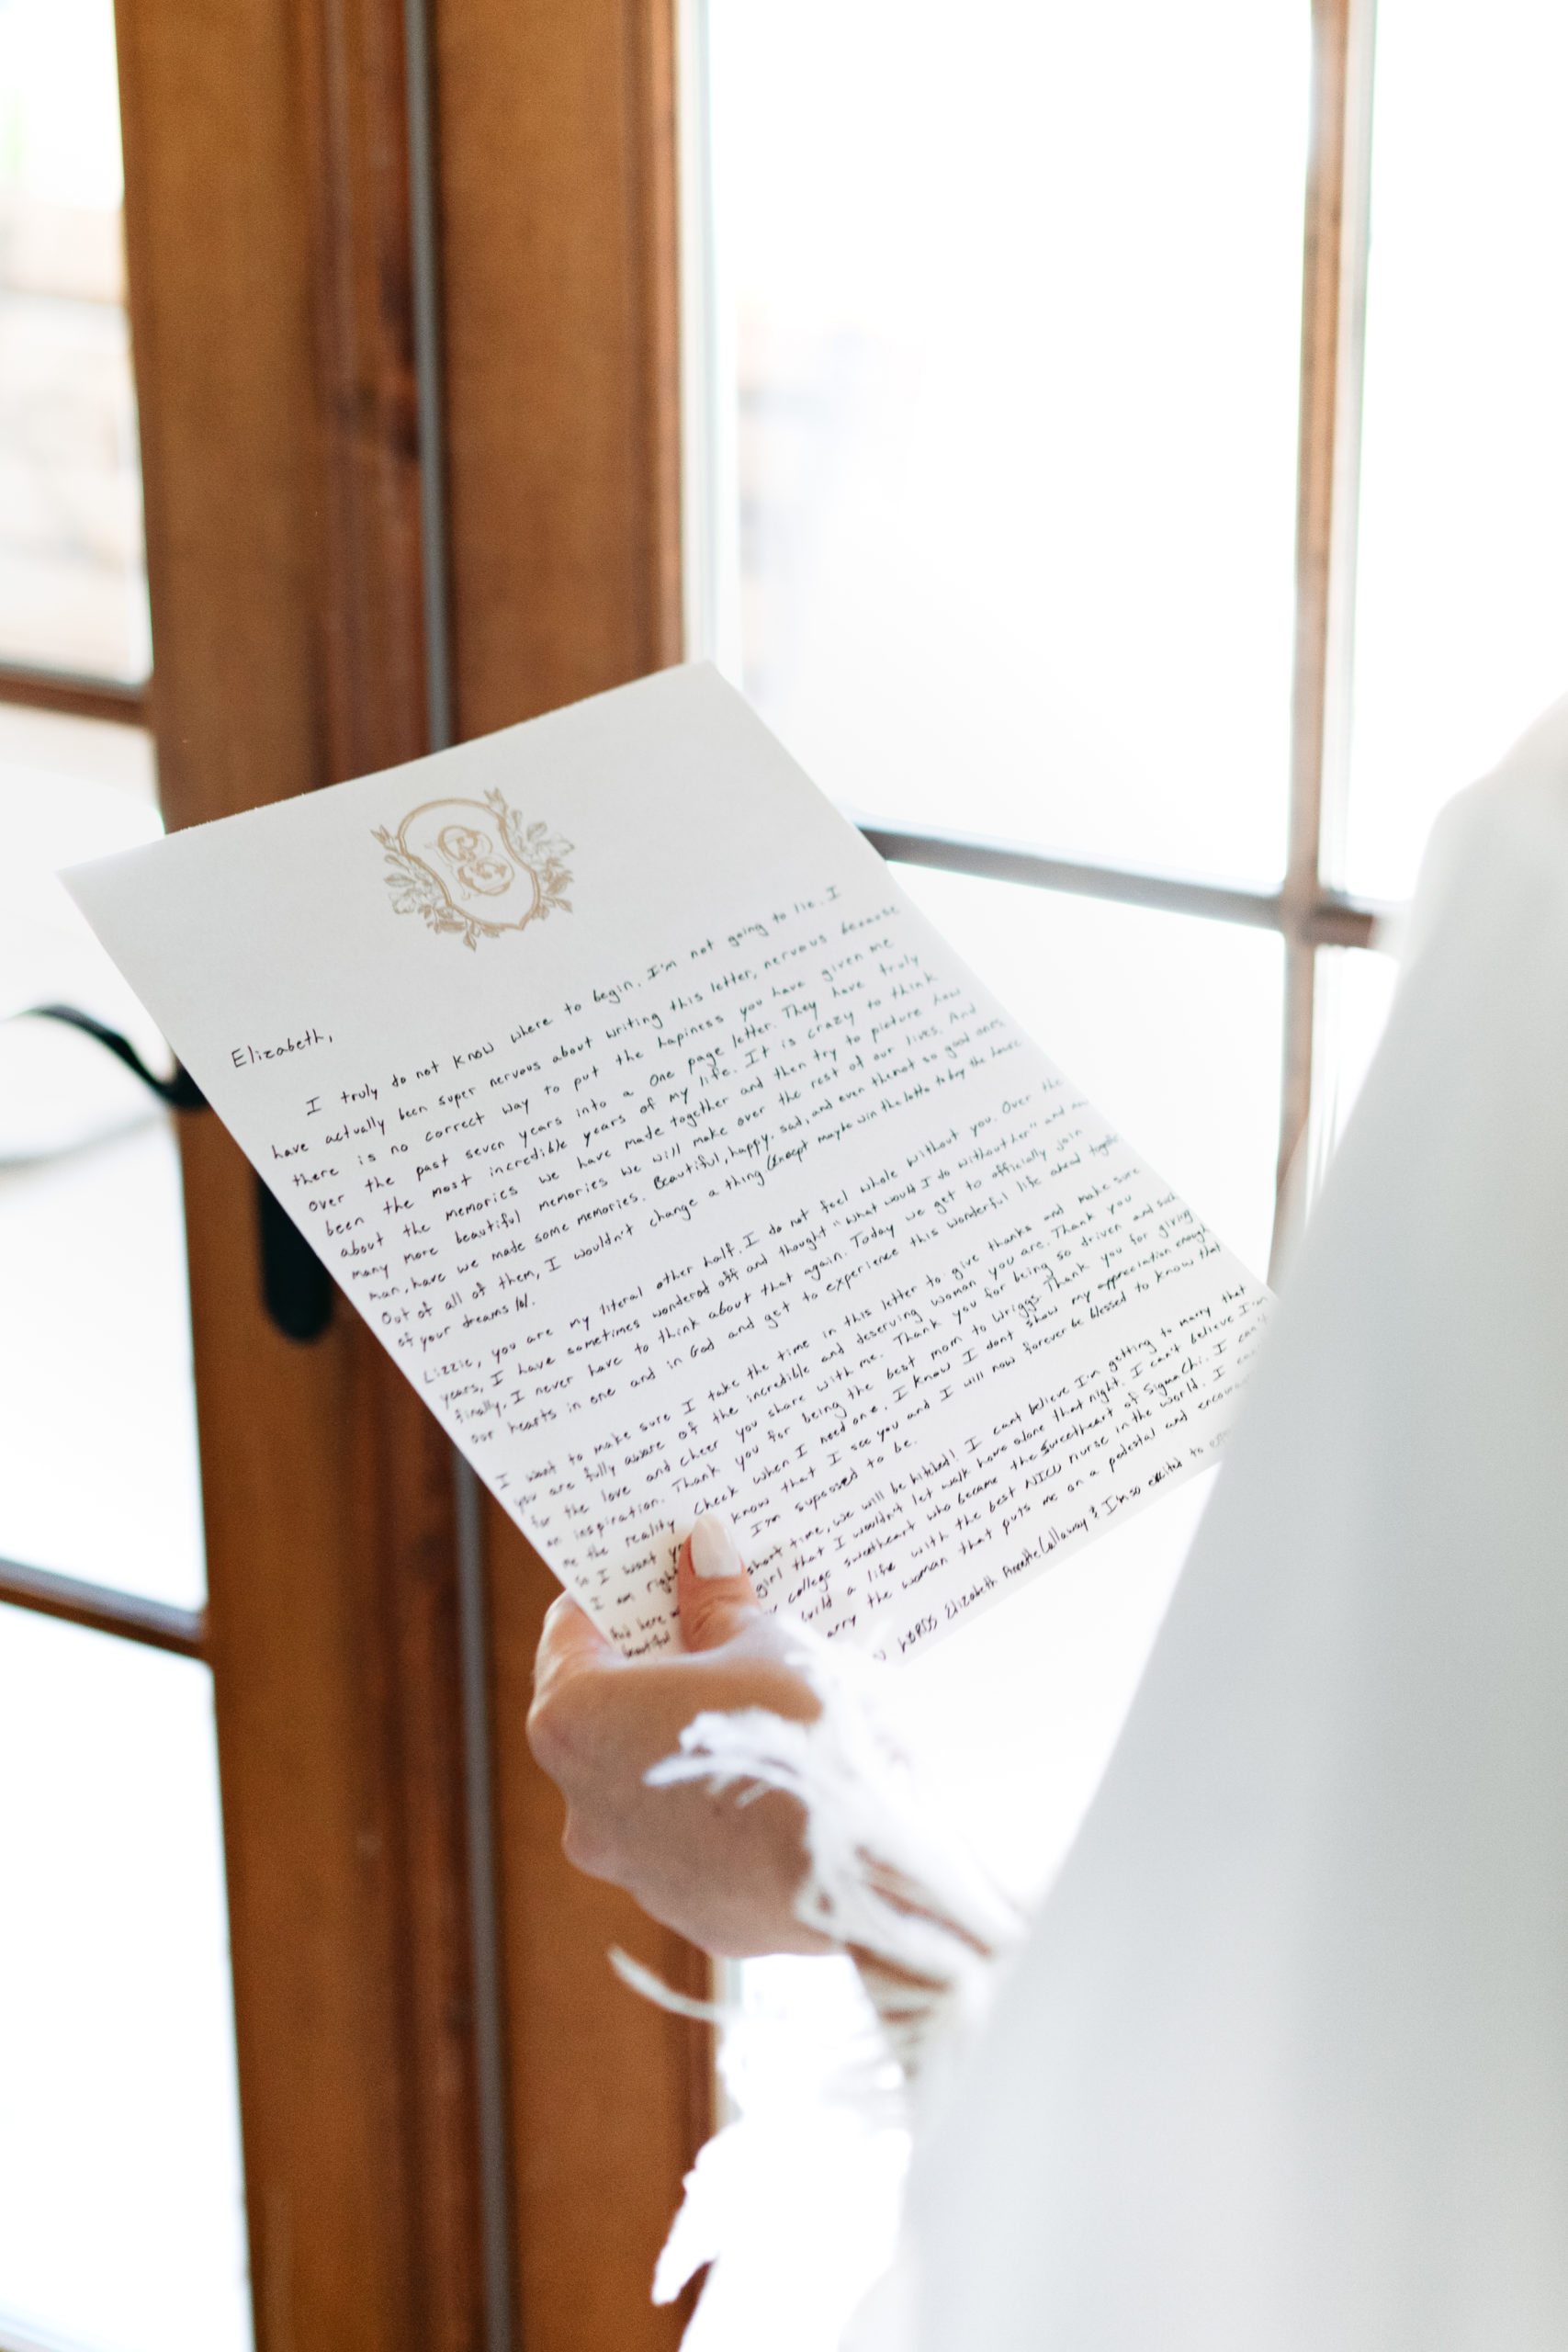 Elizabeth,
I truly do not know where to begin. I'm not going to lie. I
have actually been super nervous about writing this letter, nervous because
there is no correct way to put the hapiness you have given me
over the past seven years into a one page letter. They have truly
been the most incredible years of my life. It is crazy to think
about the memories we have made together and then try to picture how
many more beautiful memories we will make over the rest of our lives. And
man, have we made some memories. Beautiful, happy, sad, and even the not so good ones
Out of all of them, I wouldn't change a thing (Except maybe win the lotto today the house
of your dreams lol.
Lizzie, you are my literal other half. I do not feel whole without you. Over the
years, I have sometimes wondered off and thought "what would I do without her" and now
finally, I never have to think about that again. Today we get to officially join
our hearts in one and in God and get to experience this wonderful life ahead together
I want to make sure I take the time in this letter to give thanks and make sure
you are fully aware of the incredible and deserving woman you are. Thank you
for the love and cheer you share with me. Thank you for being so driven and such
an inspiration. Thank you for being the best mom to Wriggs. Thank you for giving
me the reality check when I need one. I know I dont show my appreciation enough
so I want you know that I see you and I will now forever be blessed to know that
I am right I'm supposed to be.
short time, we will be hitched! I cant believe I'm getting to marry that
beautiful girl that I wouldn't let walk home alone that night. I can't believe I'm
college sweetheart who became the sweetheart of Sigma Chi. I can't
build a life with the best NICU nurse in the world. I
the woman that puts me on a pedestal and
Elizabeth Annette Callaway & I'm so excited to